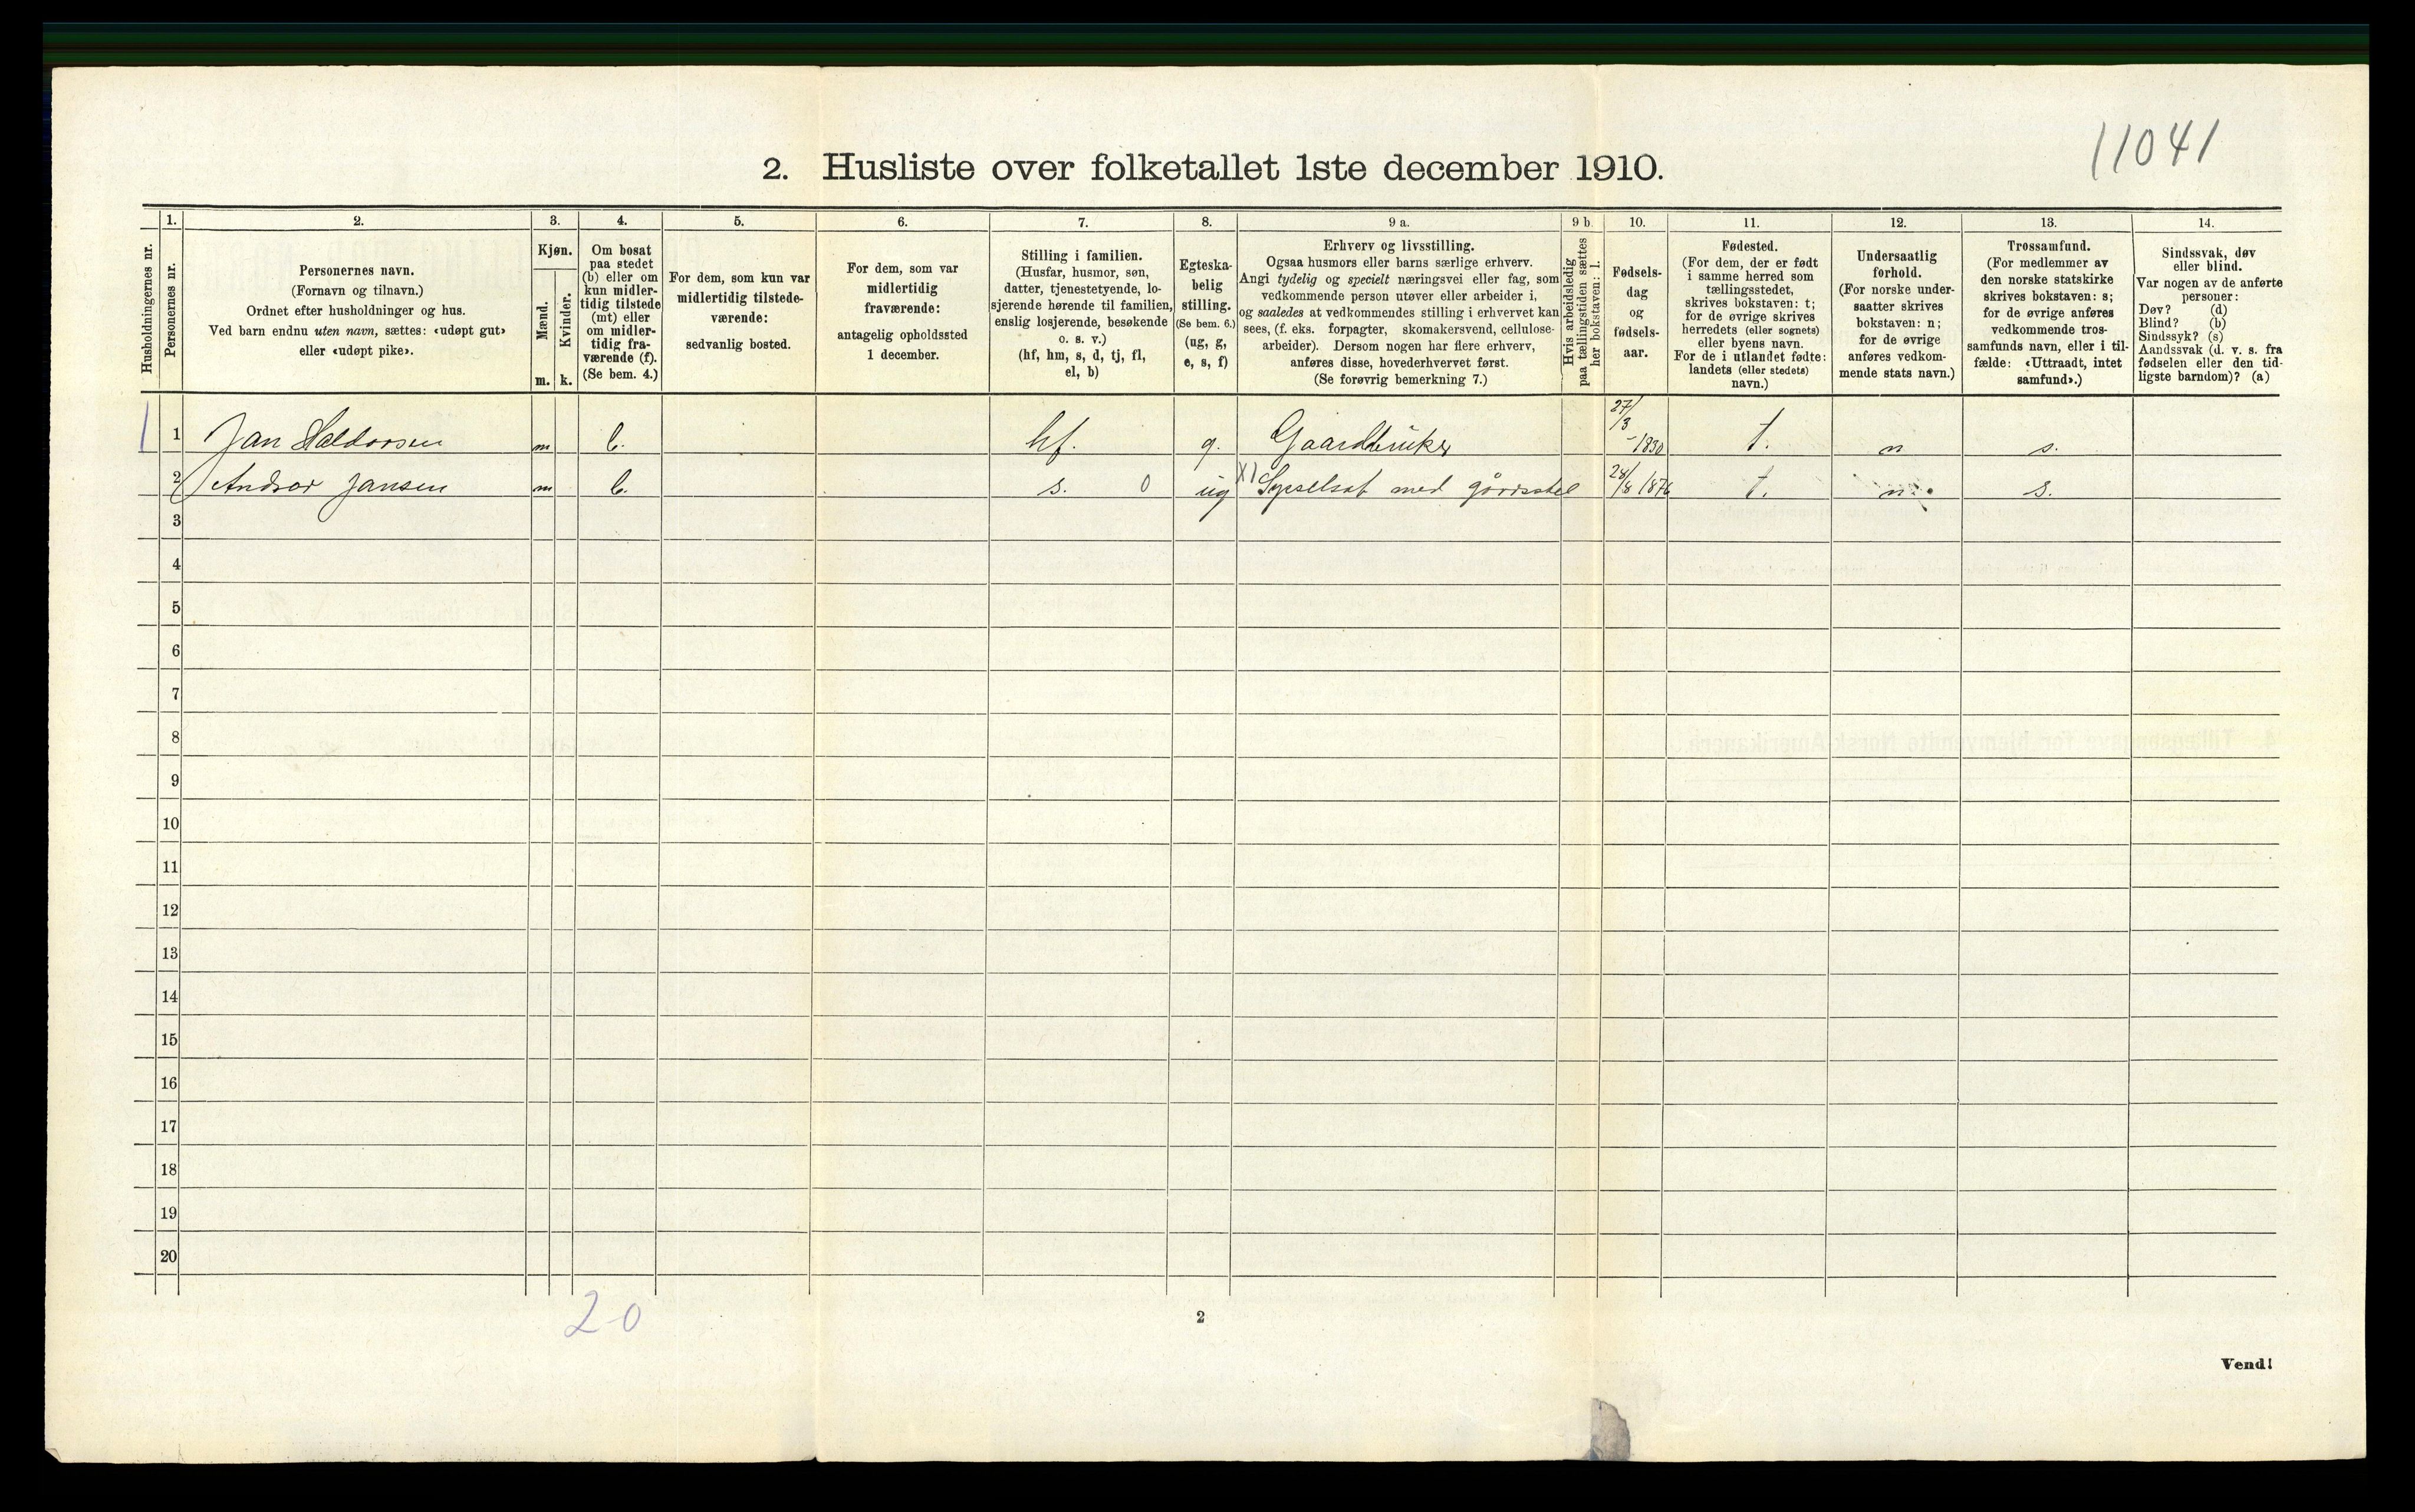 11041
2. Husliste over folketallet 1ste december 1910.
Husholdningernes nr.
1.
Personernes nr.
2.
Personernes navn.
(Fornavn og tilnavn.)
Ordnet efter husholdninger og hus.
Ved barn endnu uten navn, sættes: «udøpt gut»
eller «udøpt pike».
3.
Kjøn.
Mænd.
m.
Kvinder.
k.
4.
Om bosat
paa stedet
(b) eller om
kun midler-
tidig tilstede
(mt) eller
om midler-
tidig fra-
værende (f).
(Se bem. 4.)
5.
For dem, som kun var
midlertidig tilstede-
værende:
sedvanlig bosted.
6.
For dem, som var
midlertidig
fraværende:
antagelig opholdssted
1 december.
7.
Stilling i familien.
(Husfar, husmor, søn,
datter, tjenestetyende, lo-
sjerende hørende til familien,
enslig losjerende, besøkende
o. s. v.)
(hf, hm, s, d, tj, fl,
el, b)
8.
Egteska-
belig
stilling.
(Se bem. 6.)
(ug, g,
e, s, f)
9 a.
Erhverv og livsstilling.
Ogsaa husmors eller barns særlige erhverv.
Angi tydelig og specielt næringsvei eller fag, som
vedkommende person utøver eller arbeider i,
og saaledes at vedkommendes stilling i erhvervet kan
sees, (f. eks. forpagter, skomakersvend, cellulose-
arbeider). Dersom nogen har flere erhverv,
anføres disse, hovederhvervet først.
(Se forøvrig bemerkning 7.)
9 b.
Hvis arbeidsledig
paa tællingstiden sættes
her bokstaven: l.
10.
Fødsels-
dag
og
fødsels-
aar.
11.
Fødested.
(For dem, der er født
i samme herred som
tællingsstedet,
skrives bokstaven: t;
for de øvrige skrives
herredets (eller sognets)
eller byens navn.
For de i utlandet fødte:
landets (eller stedets)
navn.)
12.
Undersaatlig
forhold.
(For norske under-
saatter skrives
bokstaven: n;
for de øvrige
anføres vedkom-
mende stats navn.)
13.
Trossamfund.
(For medlemmer av
den norske statskirke
skrives bokstaven: s;
for de øvrige anføres
vedkommende tros-
samfunds navn, eller i til-
fælde: «Uttraadt, intet
samfund».)
14.
Sindssvak, døv
eller blind.
Var nogen av de anførte
personer:
Døv? (d)
Blind? (b)
Sindssyk? (s)
Aandssvak (d. v. s. fra
fødselen eller den tid-
ligste barndom)? (a)
1 1 Jan Haldorsen m b. hf. g. Gaardbruker 27/3 - 1830 t. n s.
2 Andreas Jansen m b. s. 0 ug X) Sysselsat med gårdsstel 28/8 1876 t. n. s.
3
4
5
6
7
8
9
10
11
12
13
14
15
16
17
18
19
20
2-0
2
Vend!